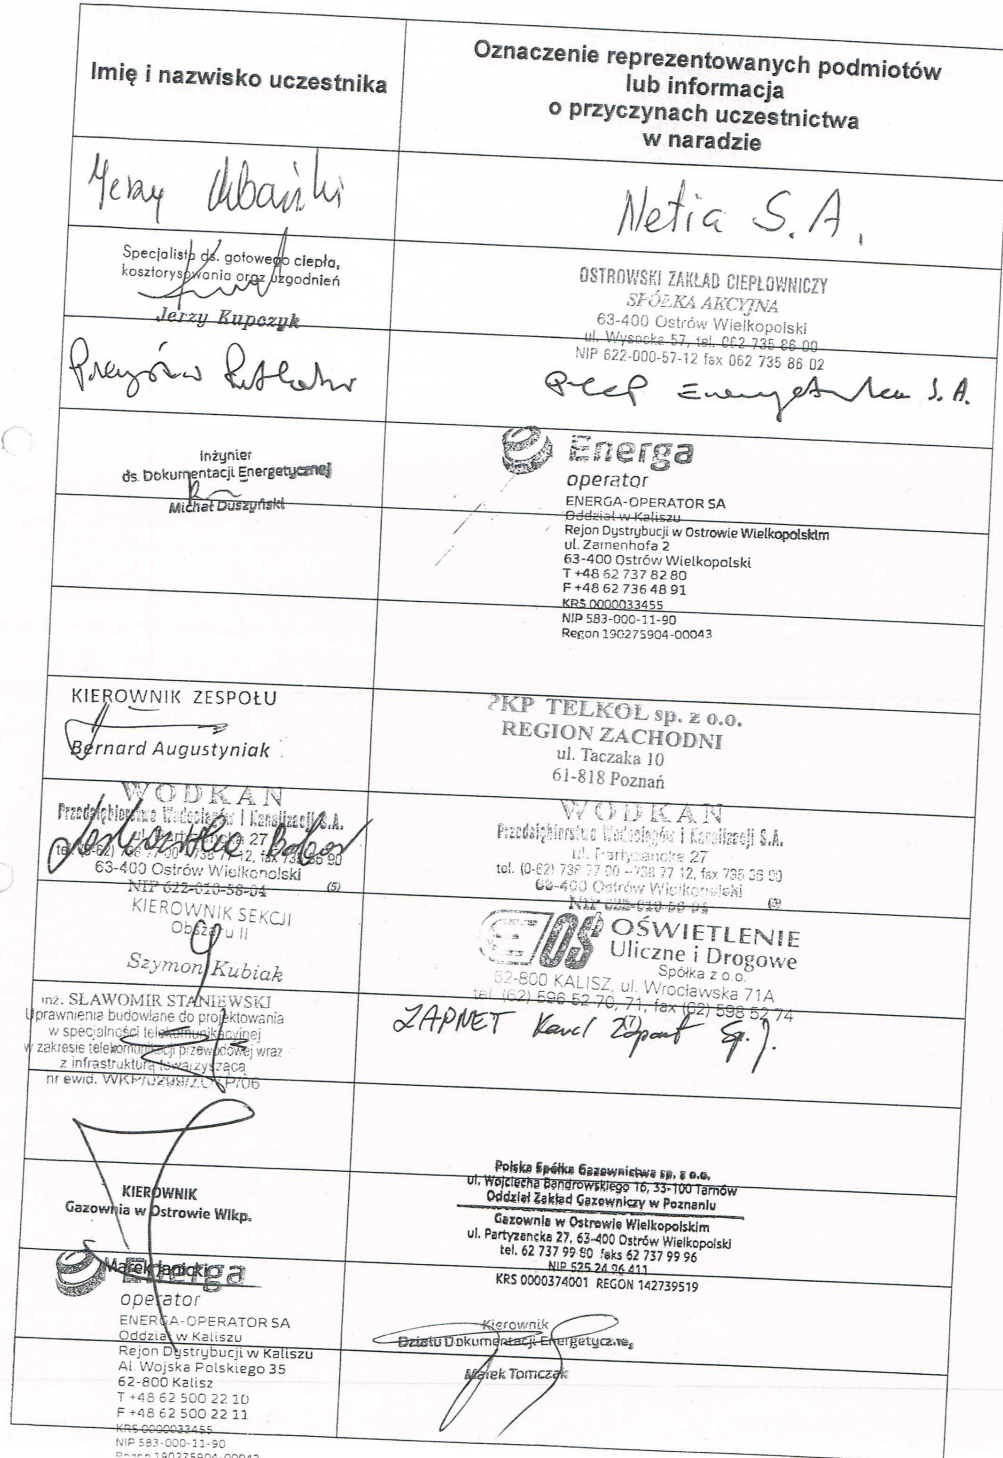 Imię i nazwisko uczestnika
Oznaczenie reprezentowanych podmiotów
lub informacja
o przyczynach uczestnictwa
w naradzie
Jerzy
Netia S.A.
Specjalista ds. gotowego ciepła,
kosztorysowania oraz uzgodnień
Jerzy Kupczyk
OSTROWSKI ZAKŁAD CIEPŁOWNICZY
SPÓŁKA AKCYJNA
63-400 Ostrów Wielkopolski
ul. Wysocka 57, tel. 062 735 86 00
NIP 622-000-57-12 fax 062 735 86 02
Energetyka S.A.
inżynier
ds. Dokumentacji Energetycznej
Michał Duszyński
Energa
operator
ENERGA-OPERATOR SA
Oddział w Kaliszu
Rejon Dystrybucji w Ostrowie Wielkopolskim
ul. Zamenhofa 2
63-400 Ostrów Wielkopolski
T +48 62 737 82 80
F +48 62 736 48 91
KRS 0000033455
NIP 583-000-11-90
Regon 190275904-00043
KIEROWNIK ZESPOŁU
Bernard Augustyniak
PKP TELKOL sp. z o.o.
REGION ZACHODNI
ul. Taczaka 10
61-818 Poznań
WODKAN
Przedsiębiorstwo Wodociągów i Kanalizacji S.A.
ul. Partyzancka 27
63-400 Ostrów Wielkopolski
NIP 622-010-58-04 (5)
WODKAN
Przedsiębiorstwo Wodociągów i Kanalizacji S.A.
ul. Partyzancka 27
tel. (0-62) 738 77 00 – 738 77 12, fax 735 86 90
63-400 Ostrów Wielkopolski
KIEROWNIK SEKCJI
Obszaru II
Szymon Kubiak
OŚWIETLENIE
Uliczne i Drogowe
Spółka z o.o.
62-800 KALISZ, ul. Wrocławska 71A
tel. (62) 596 52 70, 71, fax (62) 598 52 74
inż. SŁAWOMIR STANIEWSKI
Uprawnienia budowlane do projektowania
w specjalności telekomunikacyjnej
w zakresie telekomunikacji przewodowej wraz
z infrastrukturą towarzyszącą
nr ewid.
ZAPNET Karol Sp. J.
KIEROWNIK
Gazownia w Ostrowie Wlkp.
Marek Janicki
Polska Spółka Gazownictwa sp. z o.o.
ul. Wojciecha Bandrowskiego 16, 33-100 Tarnów
Oddział Zakład Gazowniczy w Poznaniu
Gazownia w Ostrowie Wielkopolskim
ul. Partyzancka 27, 63-400 Ostrów Wielkopolski
tel. 62 737 99 80 faks 62 737 99 96
NIP 525 24 96 411
KRS 0000374001 REGON 142739519
Energa
operator
ENERGA-OPERATOR SA
Oddział w Kaliszu
Rejon Dystrybucji w Kaliszu
Al. Wojska Polskiego 35
62-800 Kalisz
T +48 62 500 22 10
F +48 62 500 22 11
KRS 0000033455
NIP 583-000-11-90
Kierownik
Działu Dokumentacji Energetycznej
Marek Tomczak